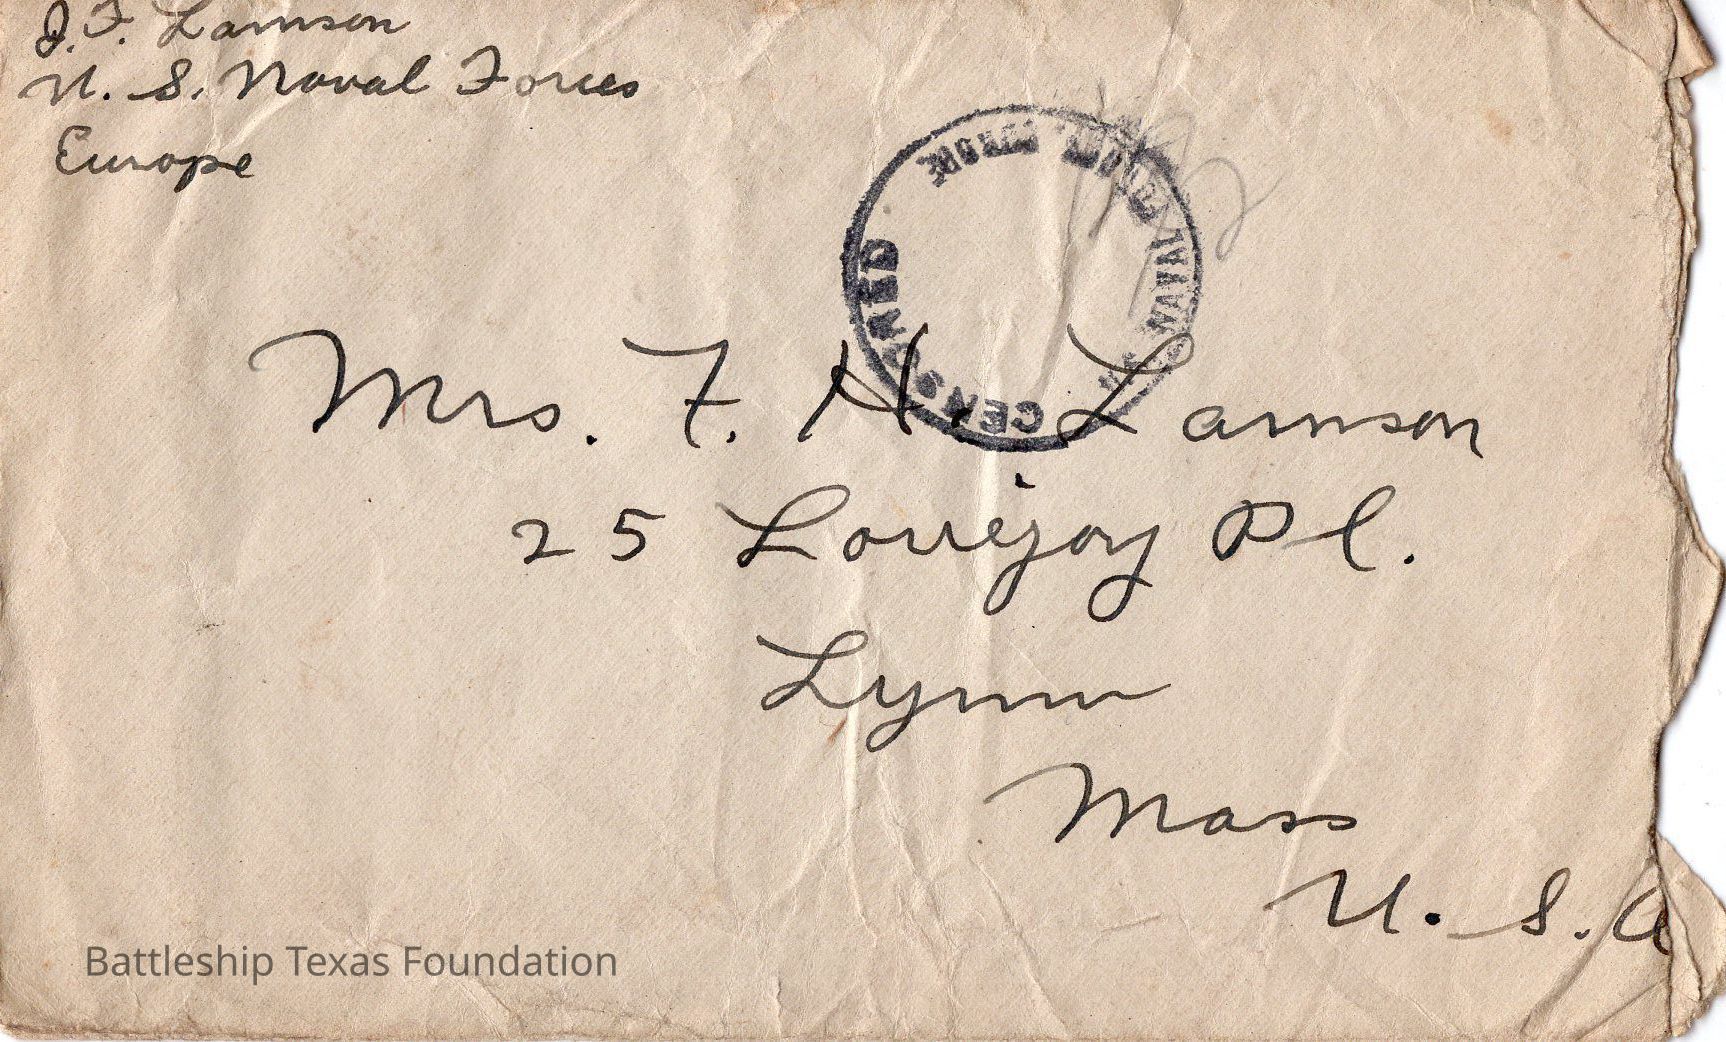 J. F. Lamson
U. S. Naval Forces
Europe
CENSORED
NAVAL
Mrs. F. H. Lamson
25 Lovejoy Pl.
Lynn
Mass
U. S. A
Battleship Texas Foundation